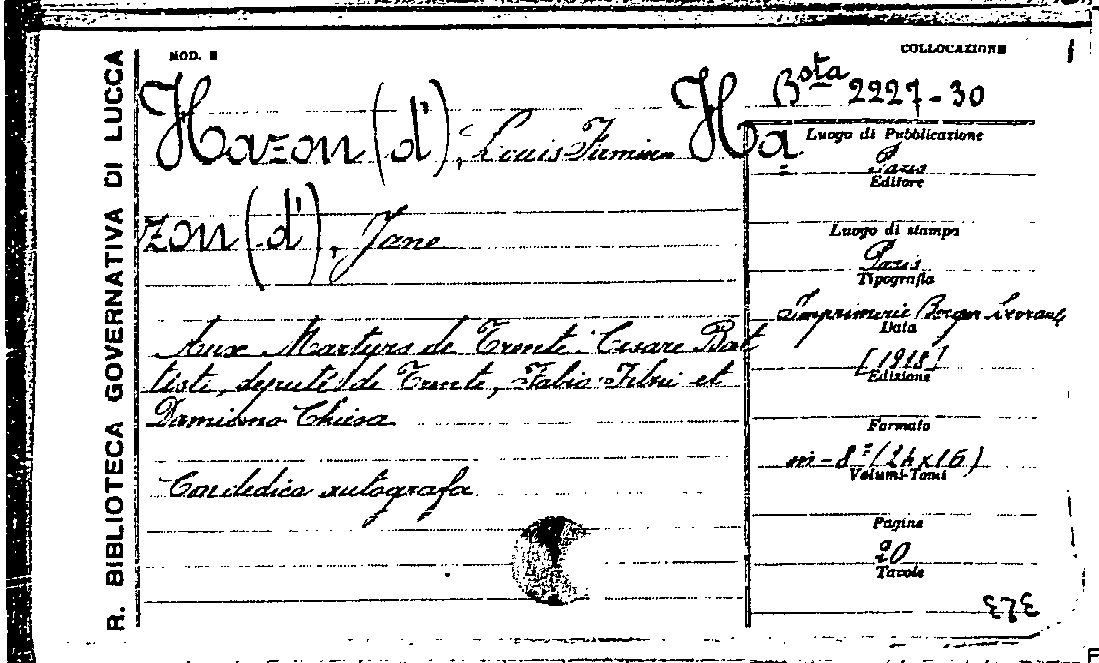 R. BIBLIOTECA GOVERNATIVA DI LUCCA
MOD. E
COLLOCAZIONE
Bsta 2227-30
Hazon (d'), Louis Firmin Ha
zon (d'), Jane
Aux Martyrs de Trente: Cesare Bat
tisti, deputé de Trente, Fabio Filzi et
Damiano Chiesa
Con dedica autografa
Luogo di Pubblicazione
Paris
Editore
Luogo di stampa
Paris
Tipografia
Imprimerie Berger Levrault
Data
[1918]
Edizione
Formato
in-8º (24x16)
Volumi-Tomi
Pagine
20
Tavole